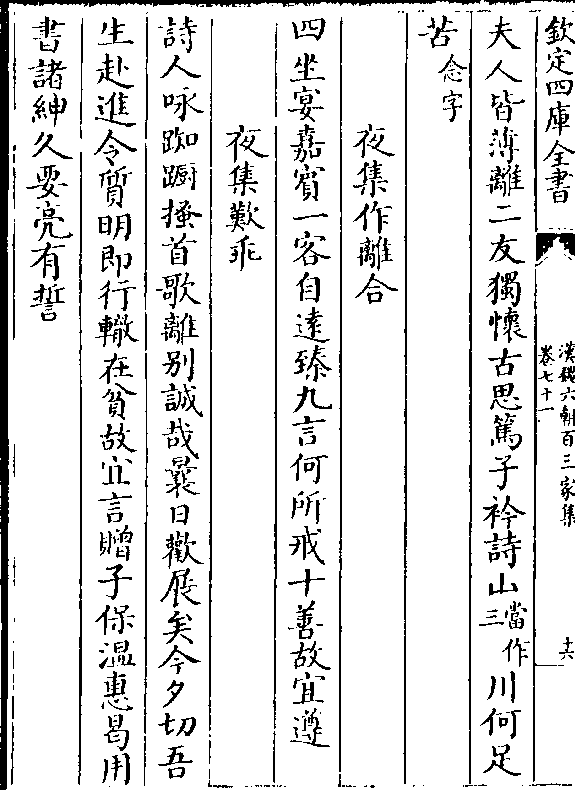 欽定四庫全書
漢魏六朝百三家集
卷七十一
十六
夫人皆薄離二友獨懷古思篤子衿詩山當作三川何足
苦念字
夜集作離合
四坐宴嘉賓一客自遠臻九言何所戒十善故宜遵
夜集歎乖
詩人咏踟蹰搔首歌離别誠哉曩日歡展矣今夕切吾
生赴進令質明即行轍在貧故宜言贈子保温惠曷用
書諸紳久要亮有誓